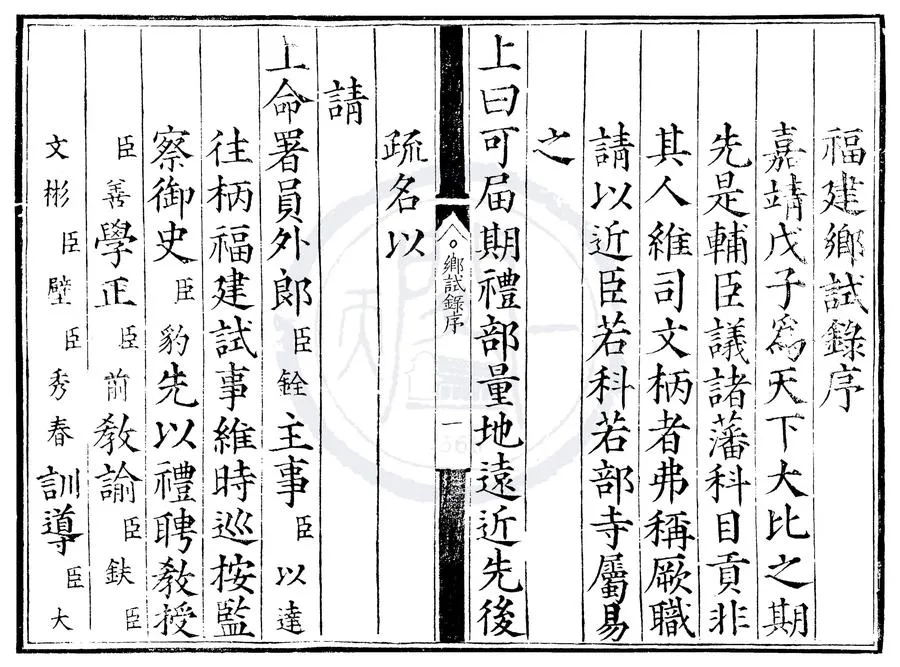 福建鄉試錄序
嘉靖戊子爲天下大比之期
先是輔臣議諸藩科目貢非
其人維司文柄者弗稱厥職
請以近臣若科若部寺屬易
之
上曰可屆期禮部量地遠近先後
鄉試錄序
一
疏名以
請
上命署員外郎臣銓主事臣以達
往柄福建試事維時巡按監
察御史臣豹先以禮聘教授
臣善學正臣前教諭臣鈇臣
文彬臣壁臣秀春訓導臣大